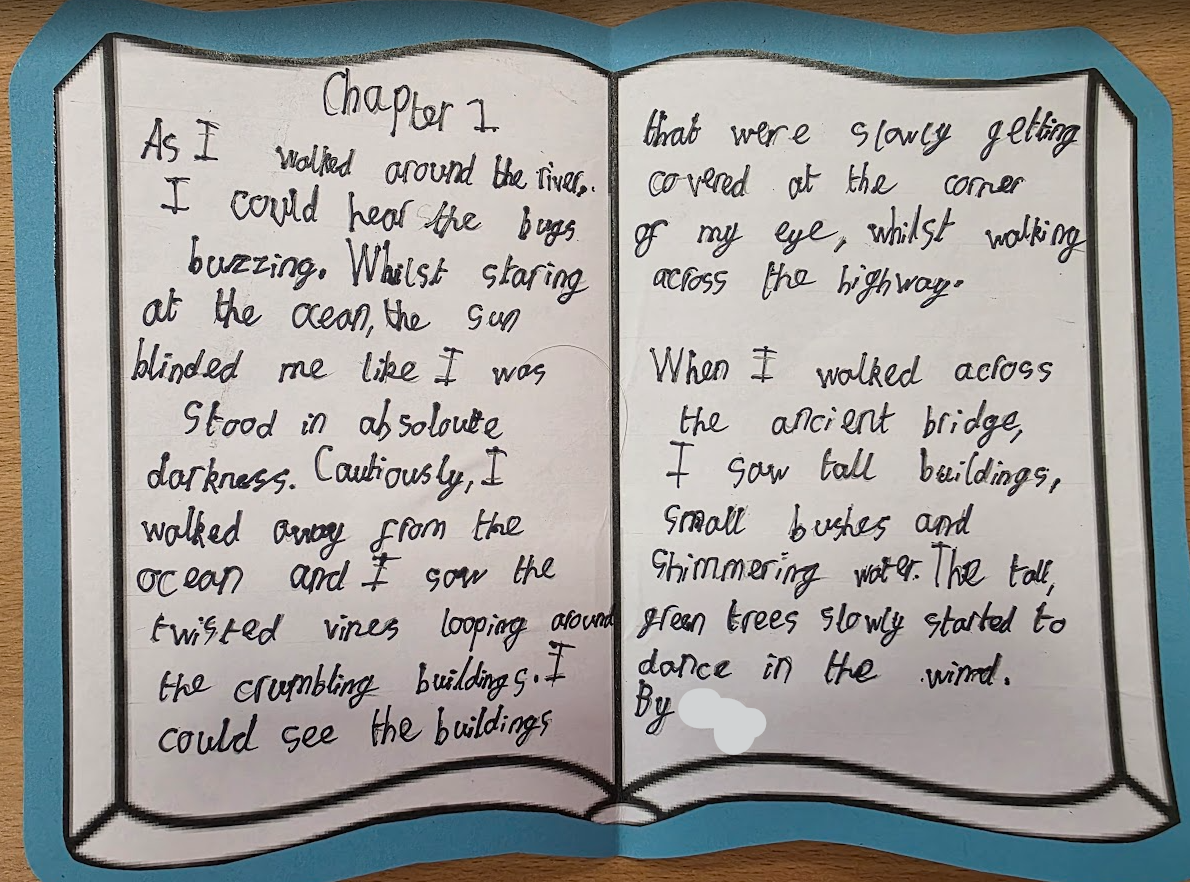 Chapter 1
As I walked around the river,.
I could hear the bugs
buzzing. Whilst staring
at the ocean, the sun
blinded me like I was
stood in absoloute
darkness. Cautiously, I
walked away from the
ocean and I saw the
twisted vines looping around
the crumbling buildings. I
could see the buildings
that were slowly getting
covered at the corner
of my eye, whilst walking
across the highway.
When I walked across
the ancient bridge,
I saw tall buildings,
small bushes and
shimmering water. The tall,
green trees slowly started to
dance in the wind.
By